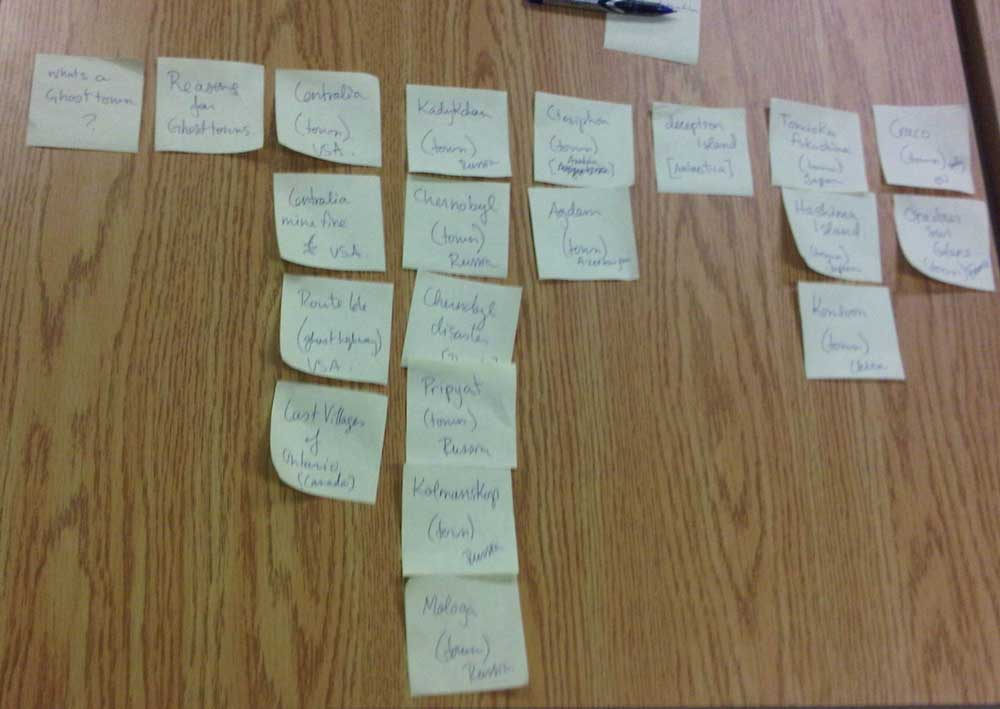 whats a
Ghost town
?
Reasons
for
Ghost towns
Centralia
(town)
USA.
Centralia
mine fire
USA.
Route 66
(ghost highway)
USA.
Lost Villages
of
Ontario
(Canada)
Kadykchan
(town)
Russia
Chernobyl
(town)
Russia
Chernobyl
disaster
Pripyat
(town)
Russia
Kolmanskop
(town)
Russia
Mologa
(town)
Russia
Ctesiphon
(town)
Agdam
(town)
Azerbaijan
deception
Island
[Antarctica]
Tomioka
fukushima
(town)
Japan
Hashima
Island
(town) Japan
(town)
Craco
(town)
sur
Glane
(town) France